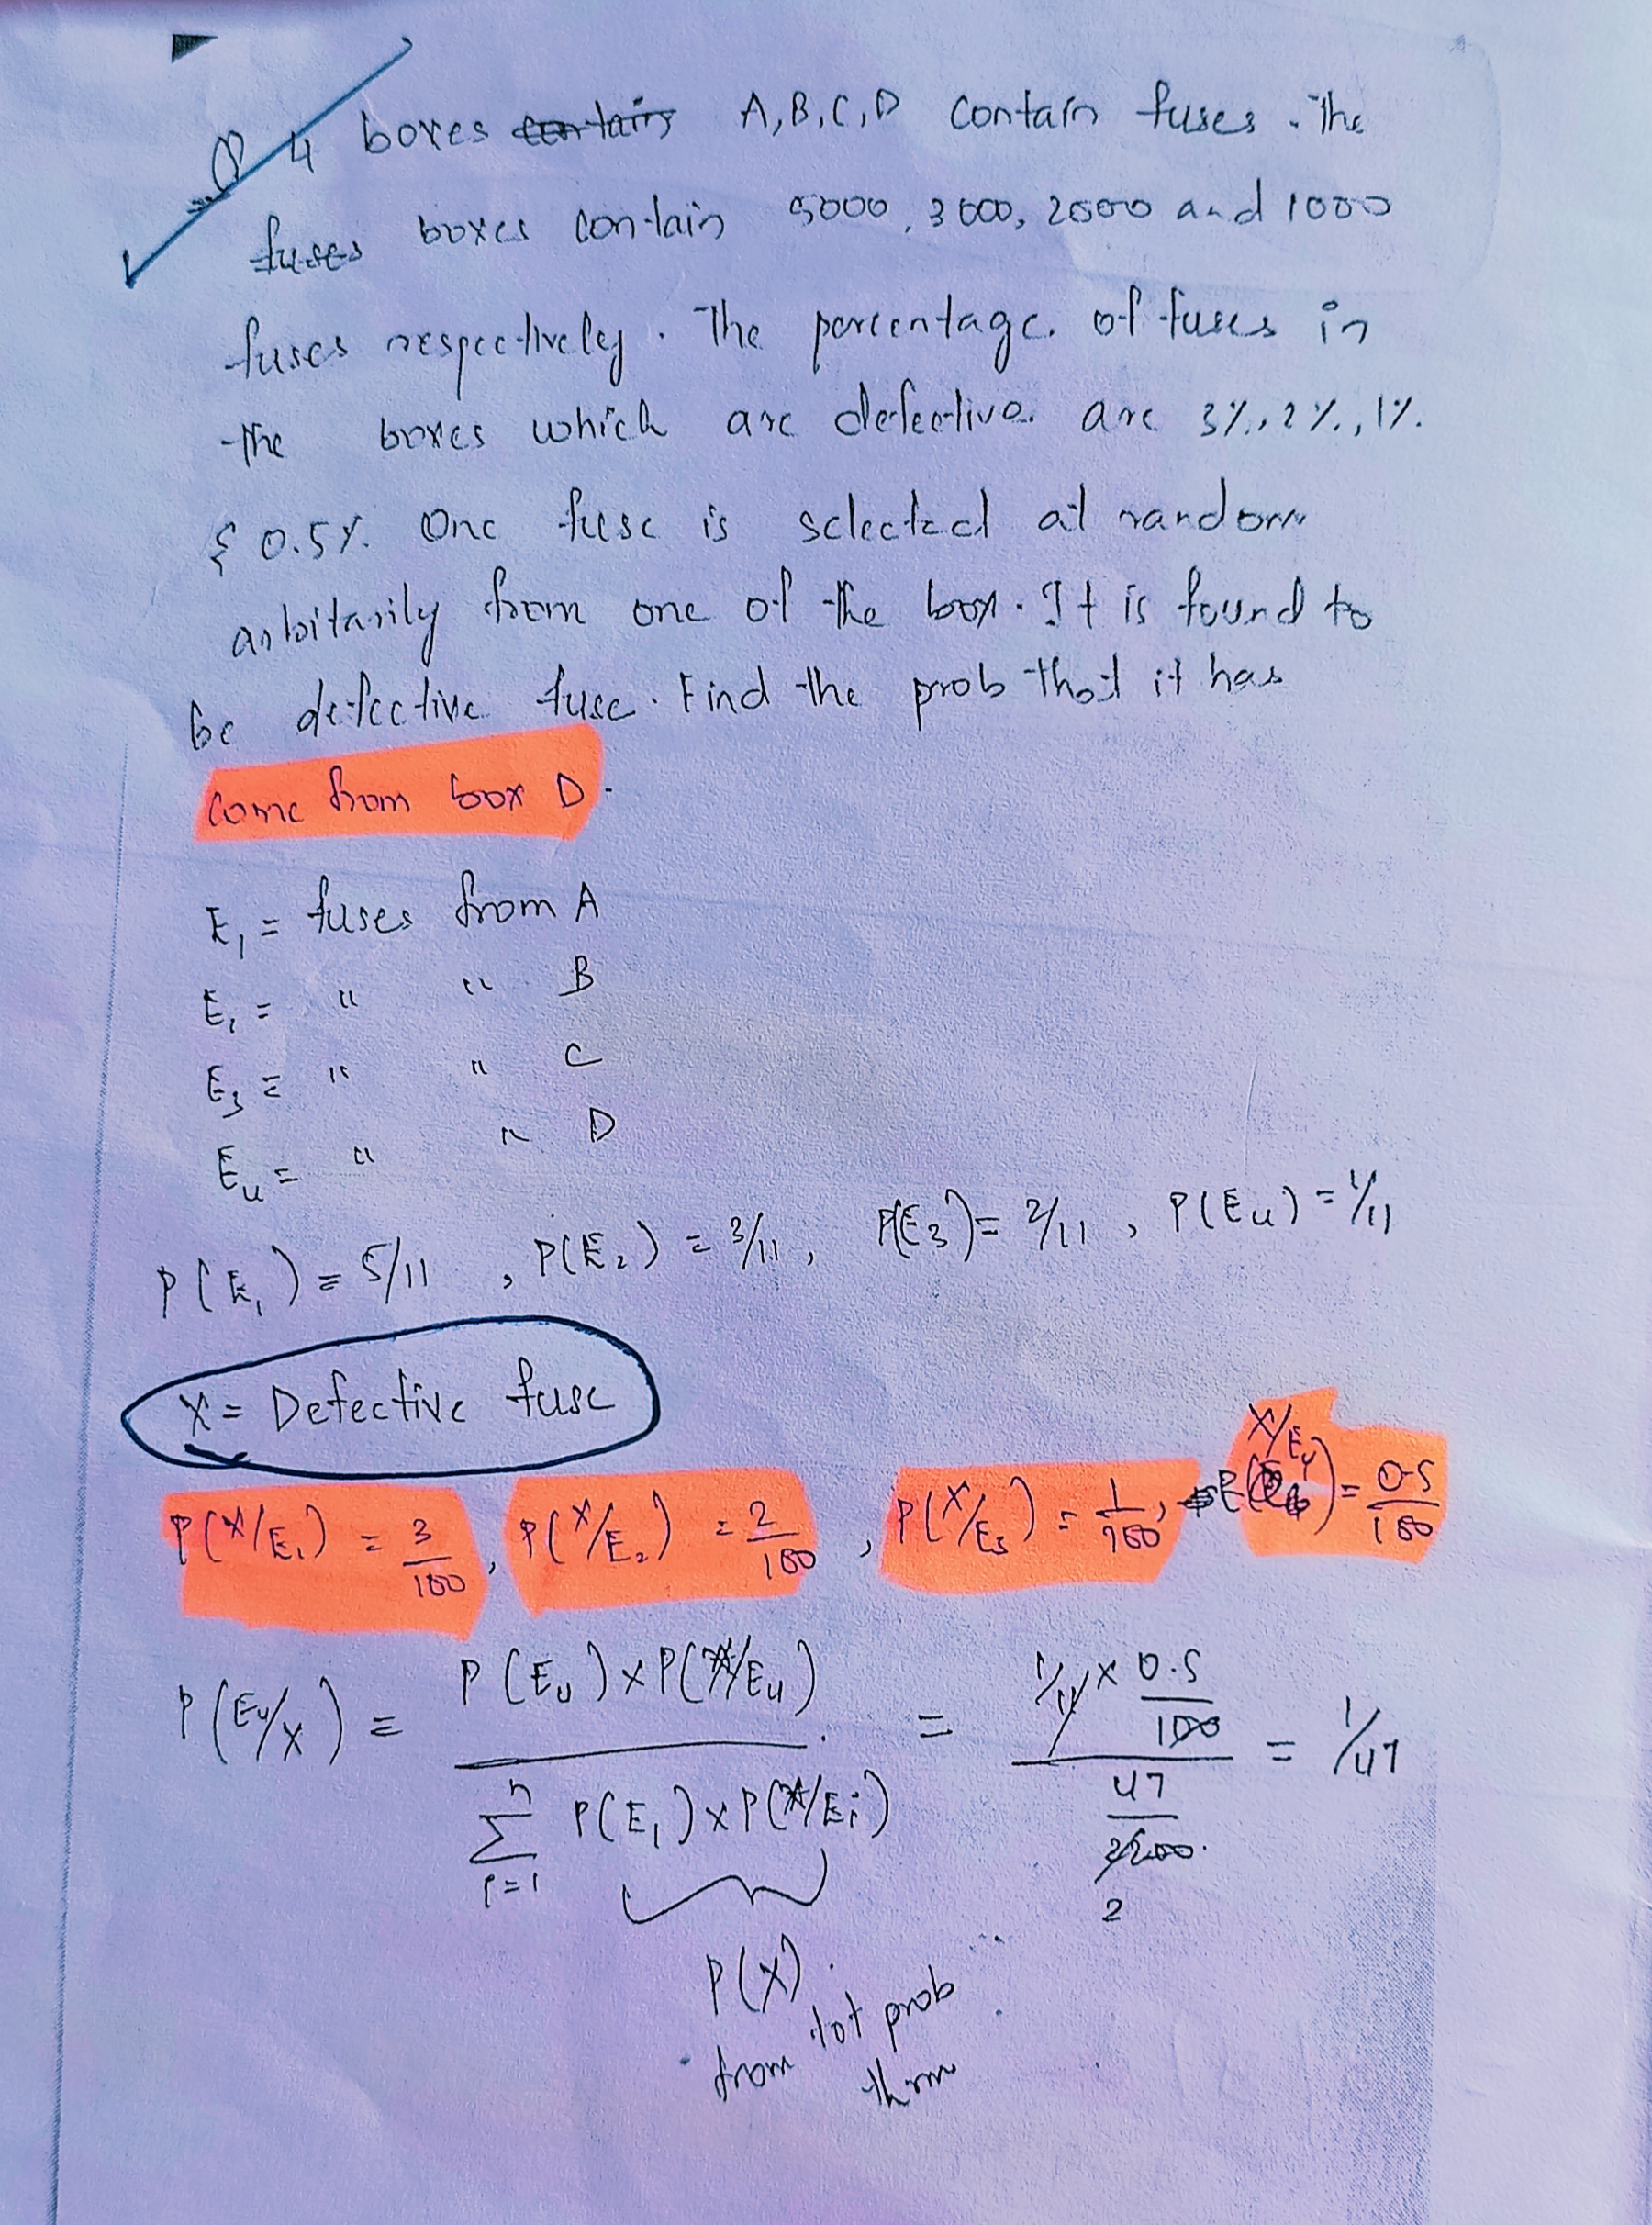 Q 4 boxes contains A,B,C,D contain fuses. The
fuses boxes contain 5000, 3000, 2000 and 1000
fuses respectively. The percentage of fuses in
the boxes which are defective are 3%, 2%, 1%.
& 0.5%. One fuse is selected at random
arbitarily from one of the box. It is found to
be defective fuse. Find the prob that it has
come from box D.
E₁ = fuses from A
E₂ = " " B
E₃ = " " C
E₄ = " " D
P(E₁) = 5/11, P(E₂) = 3/11, P(E₃) = 2/11, P(E₄) = 1/11
X = Defective fuse
P(X/E₁) = 3/100, P(X/E₂) = 2/100, P(X/E₃) = 1/100, P(X/E₄) = 0.5/100
P(E₄/X) = P(E₄) x P(X/E₄) / ∑ⁿᵢ₌₁ P(E₁) x P(X/Eᵢ) = 1/11 x 0.5/100 / 47/2200 2 = 1/47
P(X).
from tot prob
thrm